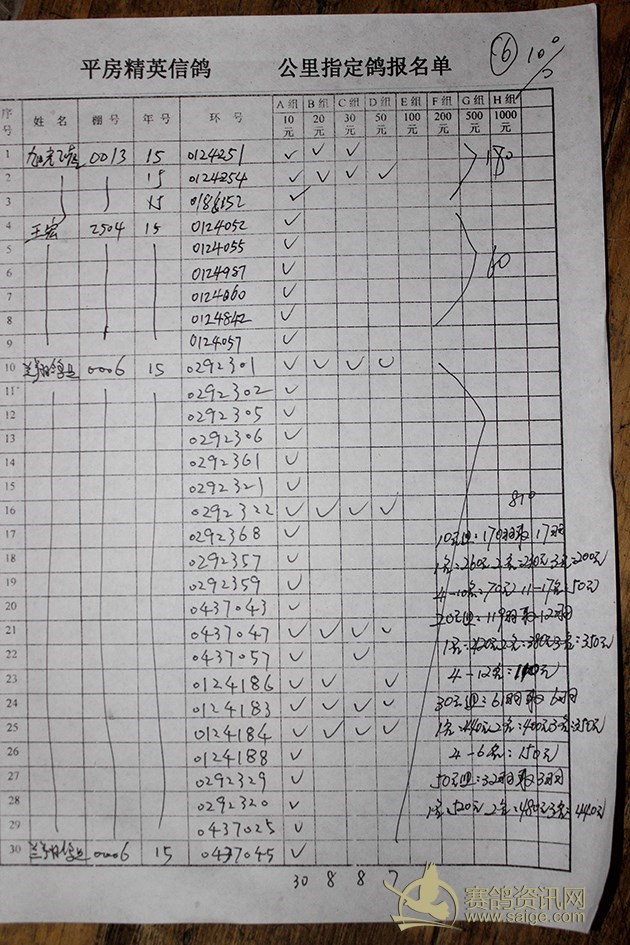 平房精英信鸽 公里指定鸽报名单 ⑥ 10
序号 姓名 棚号 年号 环号 A组10元 B组20元 C组30元 D组50元 E组100元 F组200元 G组500元 H组1000元
1 0013 15 0124251 ✓ ✓ ✓ 180
2 15 0124254 ✓ ✓ ✓ ✓
3 15 ✓
4 王宏 2504 15 0124052 ✓
5 0124055 ✓
6 0124987 ✓ 60
7 0124060 ✓
8 0124842 ✓
9 0124057 ✓
10 0006 15 0292301 ✓ ✓ ✓ ✓
11 0292302 ✓
12 0292305 ✓
13 0292306 ✓
14 0292361 ✓
15 0292321 ✓
16 0292322 ✓ ✓ ✓ ✓ 810
17 0292368 ✓ 10元组:170羽取17羽
18 0292357 ✓ 1名:260元 2名:230元 3名:200元
19 0292359 ✓ 4-10名:70元 11-17名:50元
20 0437043 ✓ 20元组:119羽取12羽
21 0437047 ✓ ✓ ✓ ✓ 1名:420元 2名:380元 3名:350元
22 0437057 ✓ ✓ 4-12名:110元
23 0124186 ✓ ✓ ✓ 30元组:61羽取6羽
24 0124183 ✓ ✓ ✓ ✓
25 0124184 ✓ ✓ ✓ ✓ 1名:440元 2名:400元 3名:350元
26 0124188 ✓ 4-6名:150元
27 0292329 ✓ 50元组:32羽取3羽
28 0292320 ✓ 1名:520元 2名:480元 3名:440元
29 0437025 ✓
30 0006 15 0437045 ✓
30 8 8 7
赛鸽资讯网
www.saige.com